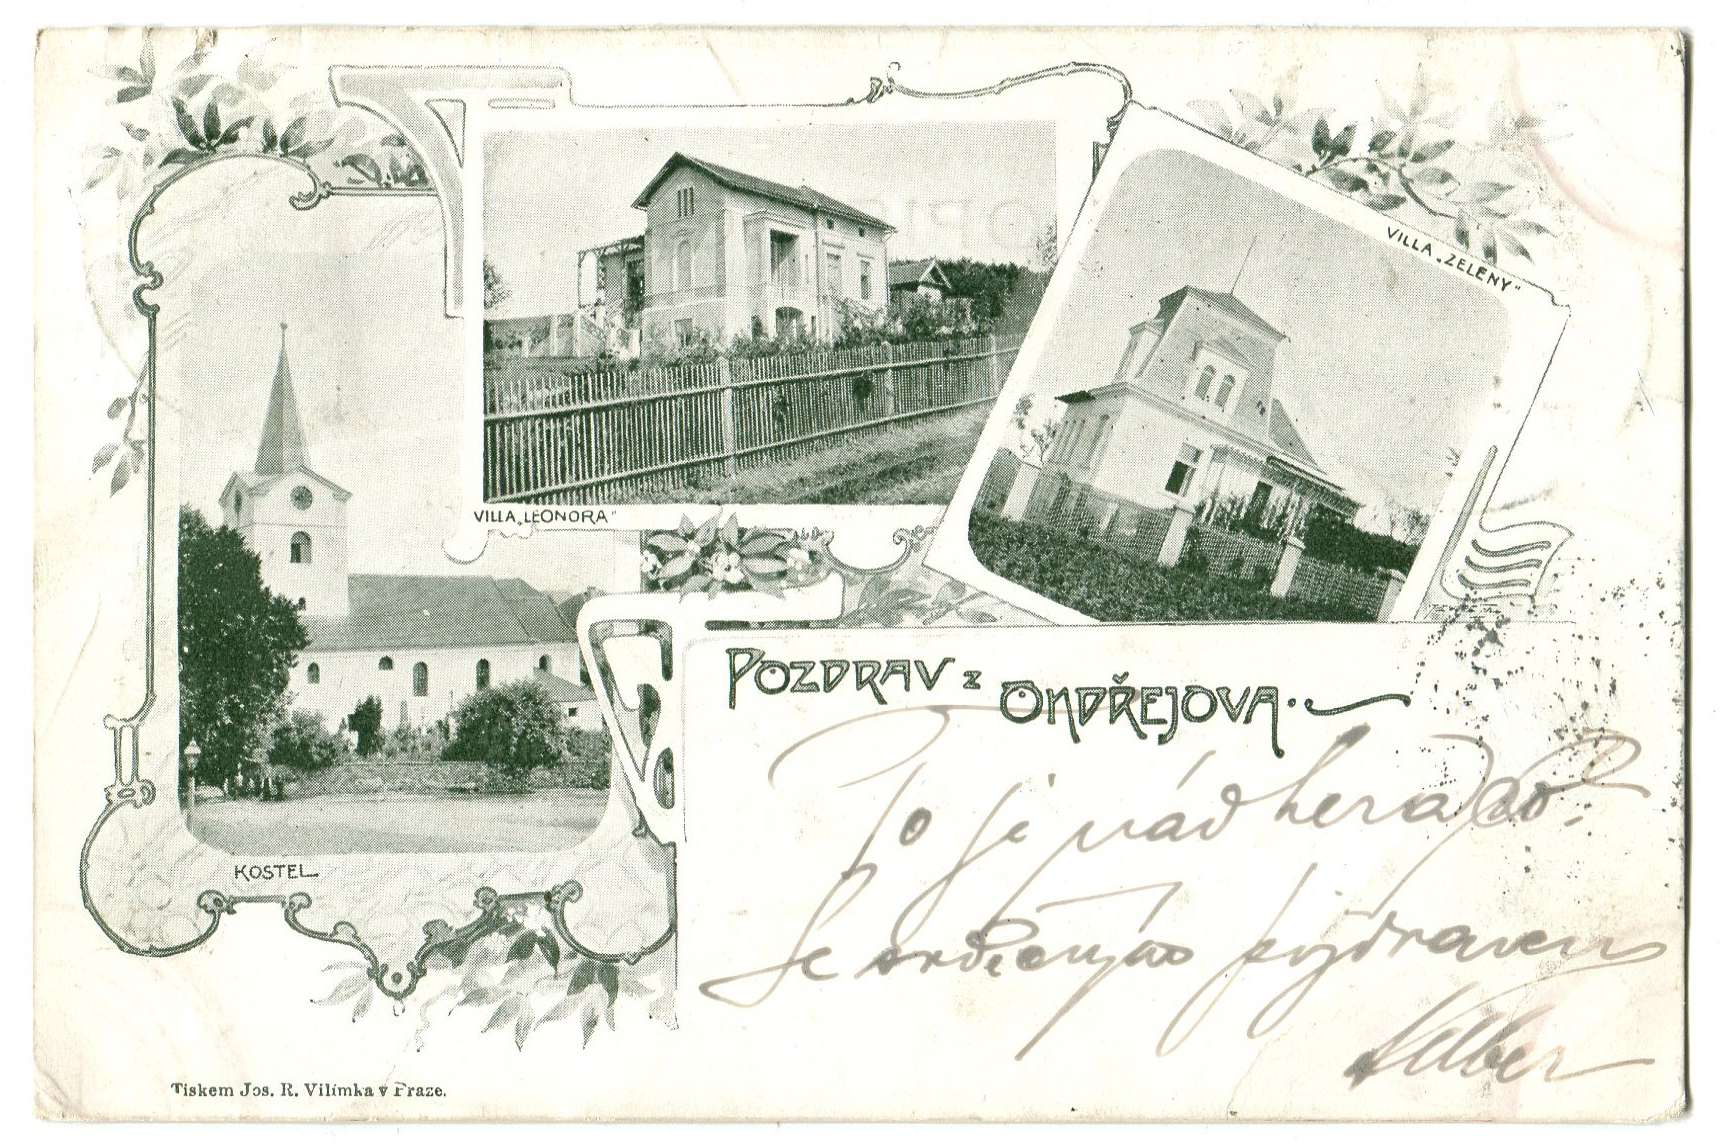 VILLA „ZELENY“
VILLA „LEONORA“
POZDRAV z ONDŘEJOVA.
To je nádhera, co?
Se srdečným pozdravem
KOSTEL
Tiskem Jos. R. Vilímka v Praze.